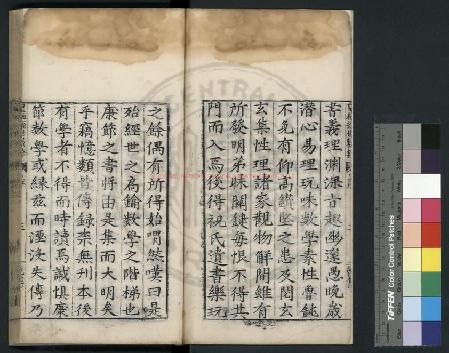 書義理淵深旨趣幽邃愚晚歲
潛心易理玩味數學素性魯鈍
不免有仰高鑽堅之患及閱玄
玄集性理諸家觀物解闢雖有
所發明弟昧關鍵每恨不得其
門而入焉後得祝氏遺書樂玩
之餘偶有所得始喟然嘆曰是
殆經世之為鑰數學之階梯也
康節之書將由是集而大明矣
乎竊憶類皆傳錄槩無刊本後
有學者不得而時讀焉誠惧康
節數學或緣茲而湮沒失傳乃
TIFFEN Color Control Patches